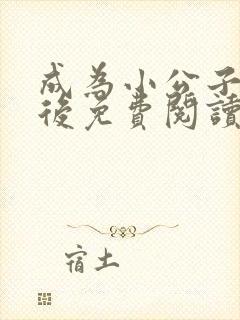 成為小公子
後免費閱讀
宿土